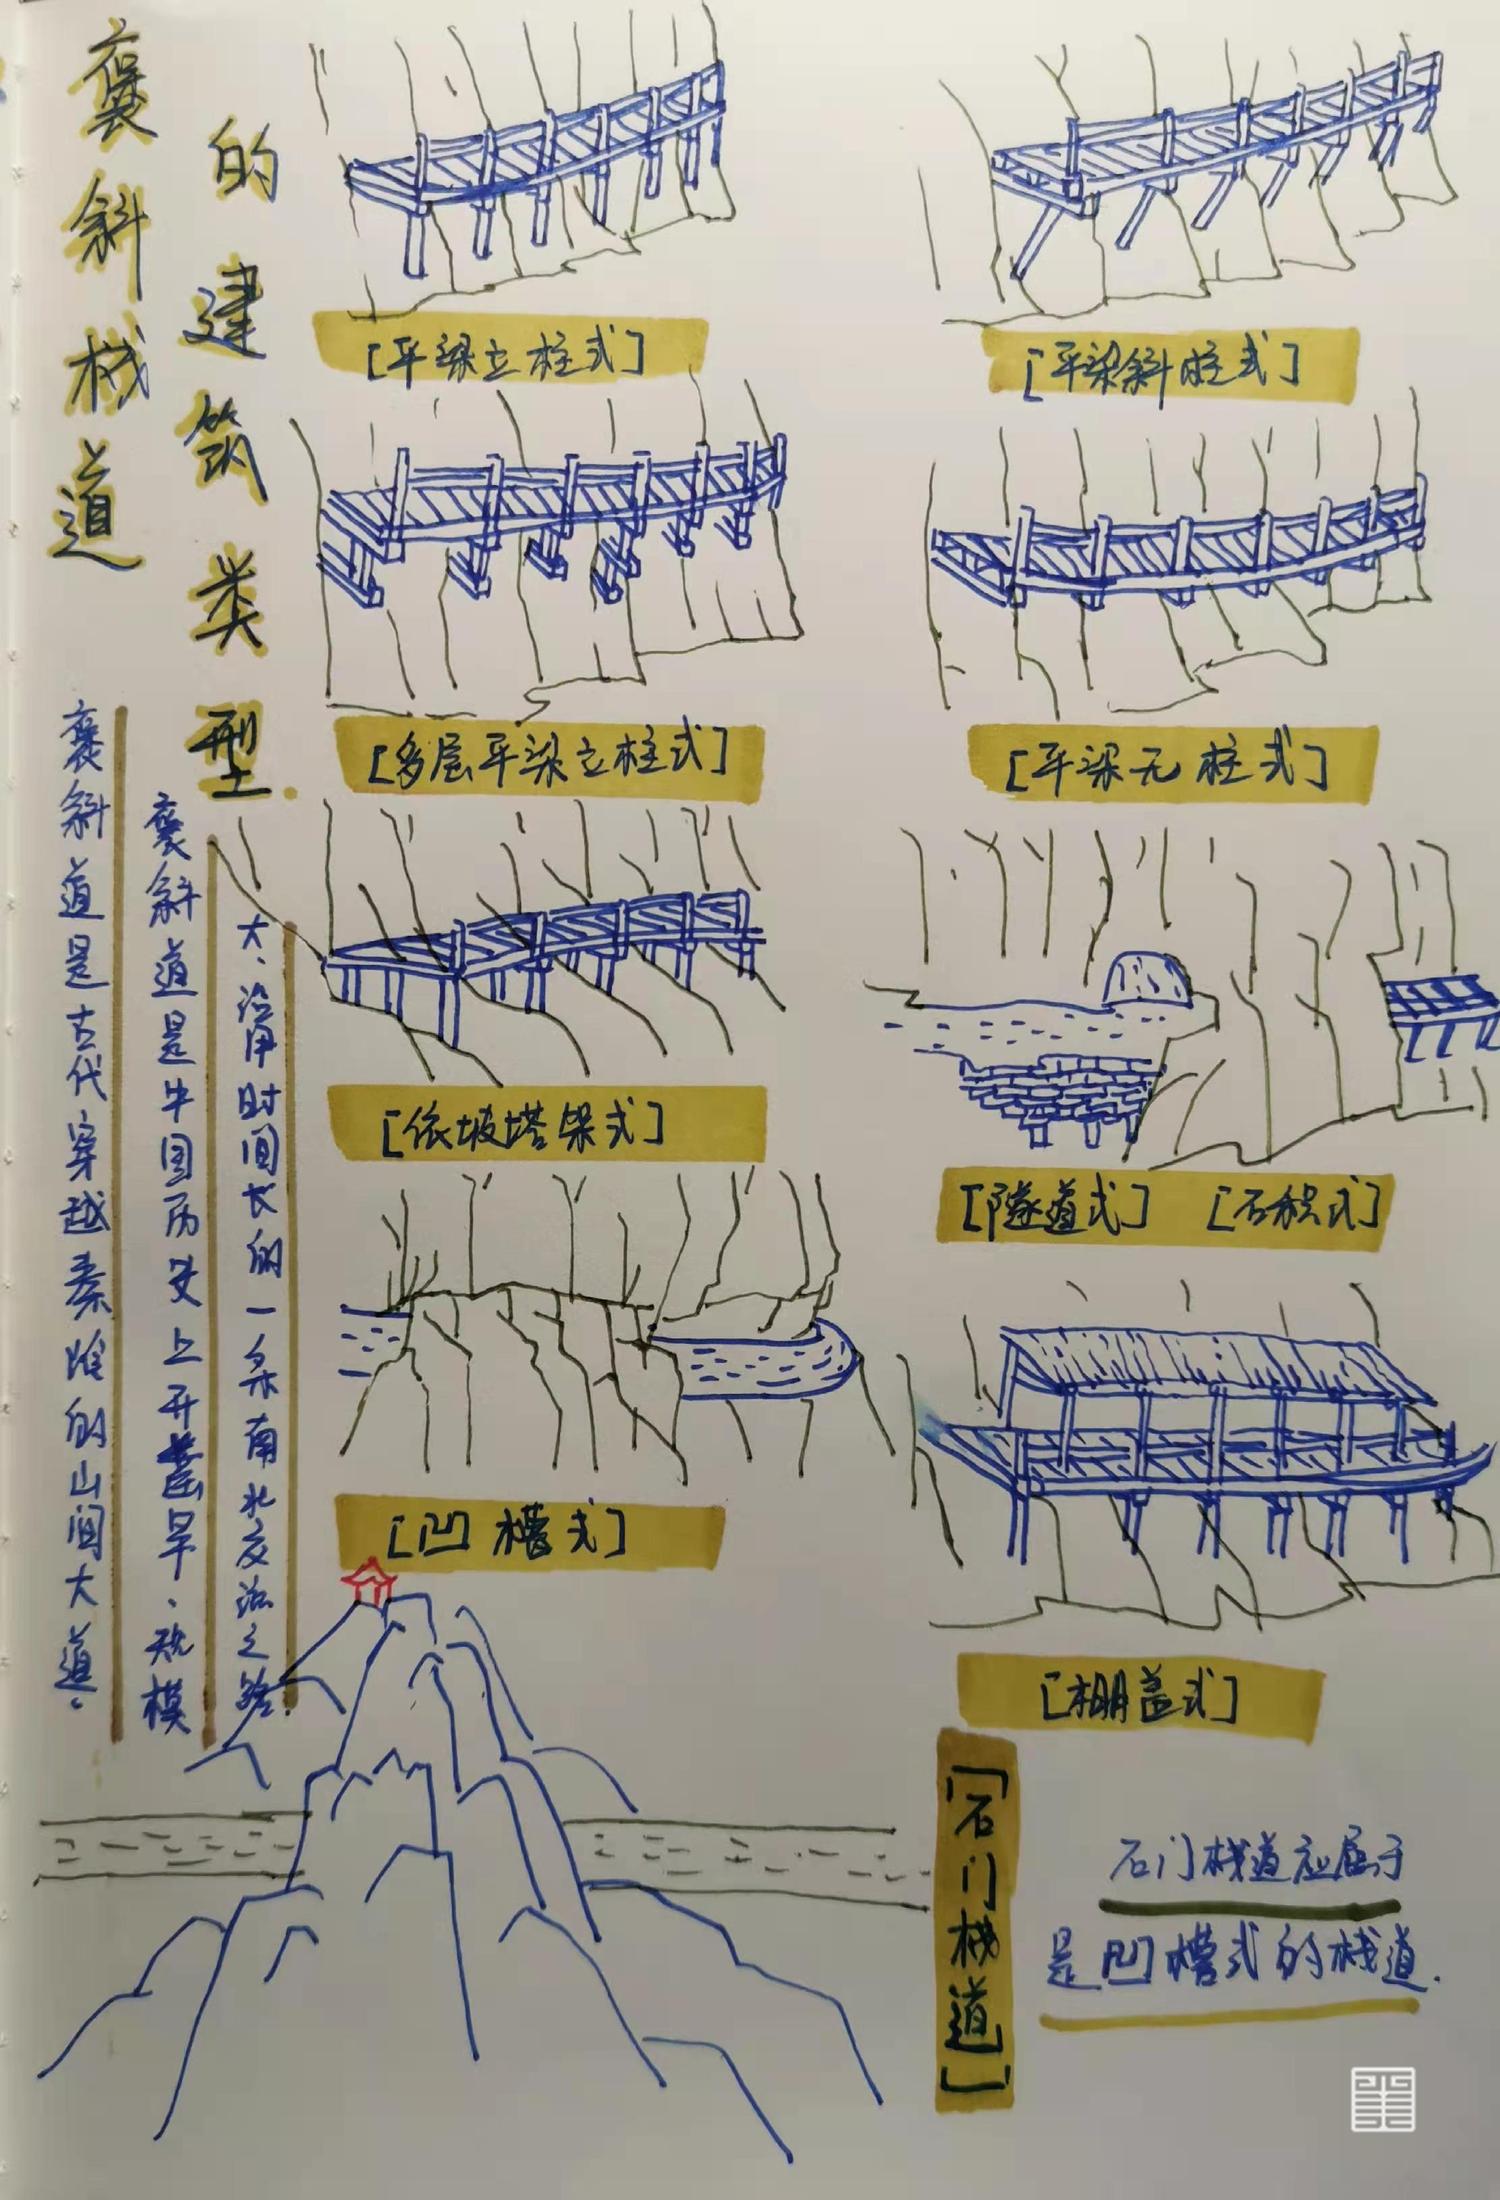 褒斜栈道
的建筑类型.
褒斜道是古代穿越秦岭的山间大道。
褒斜道是中国历史上开凿早、规模
大、沿用时间长的一条南北交流之路.
[平梁立柱式]
[平梁斜柱式]
[多层平梁立柱式]
[平梁无柱式]
[依坡塔架式]
[隧道式] [石积式]
[凹槽式]
[棚盖式]
[石门栈道]
石门栈道应属于
是凹槽式的栈道.